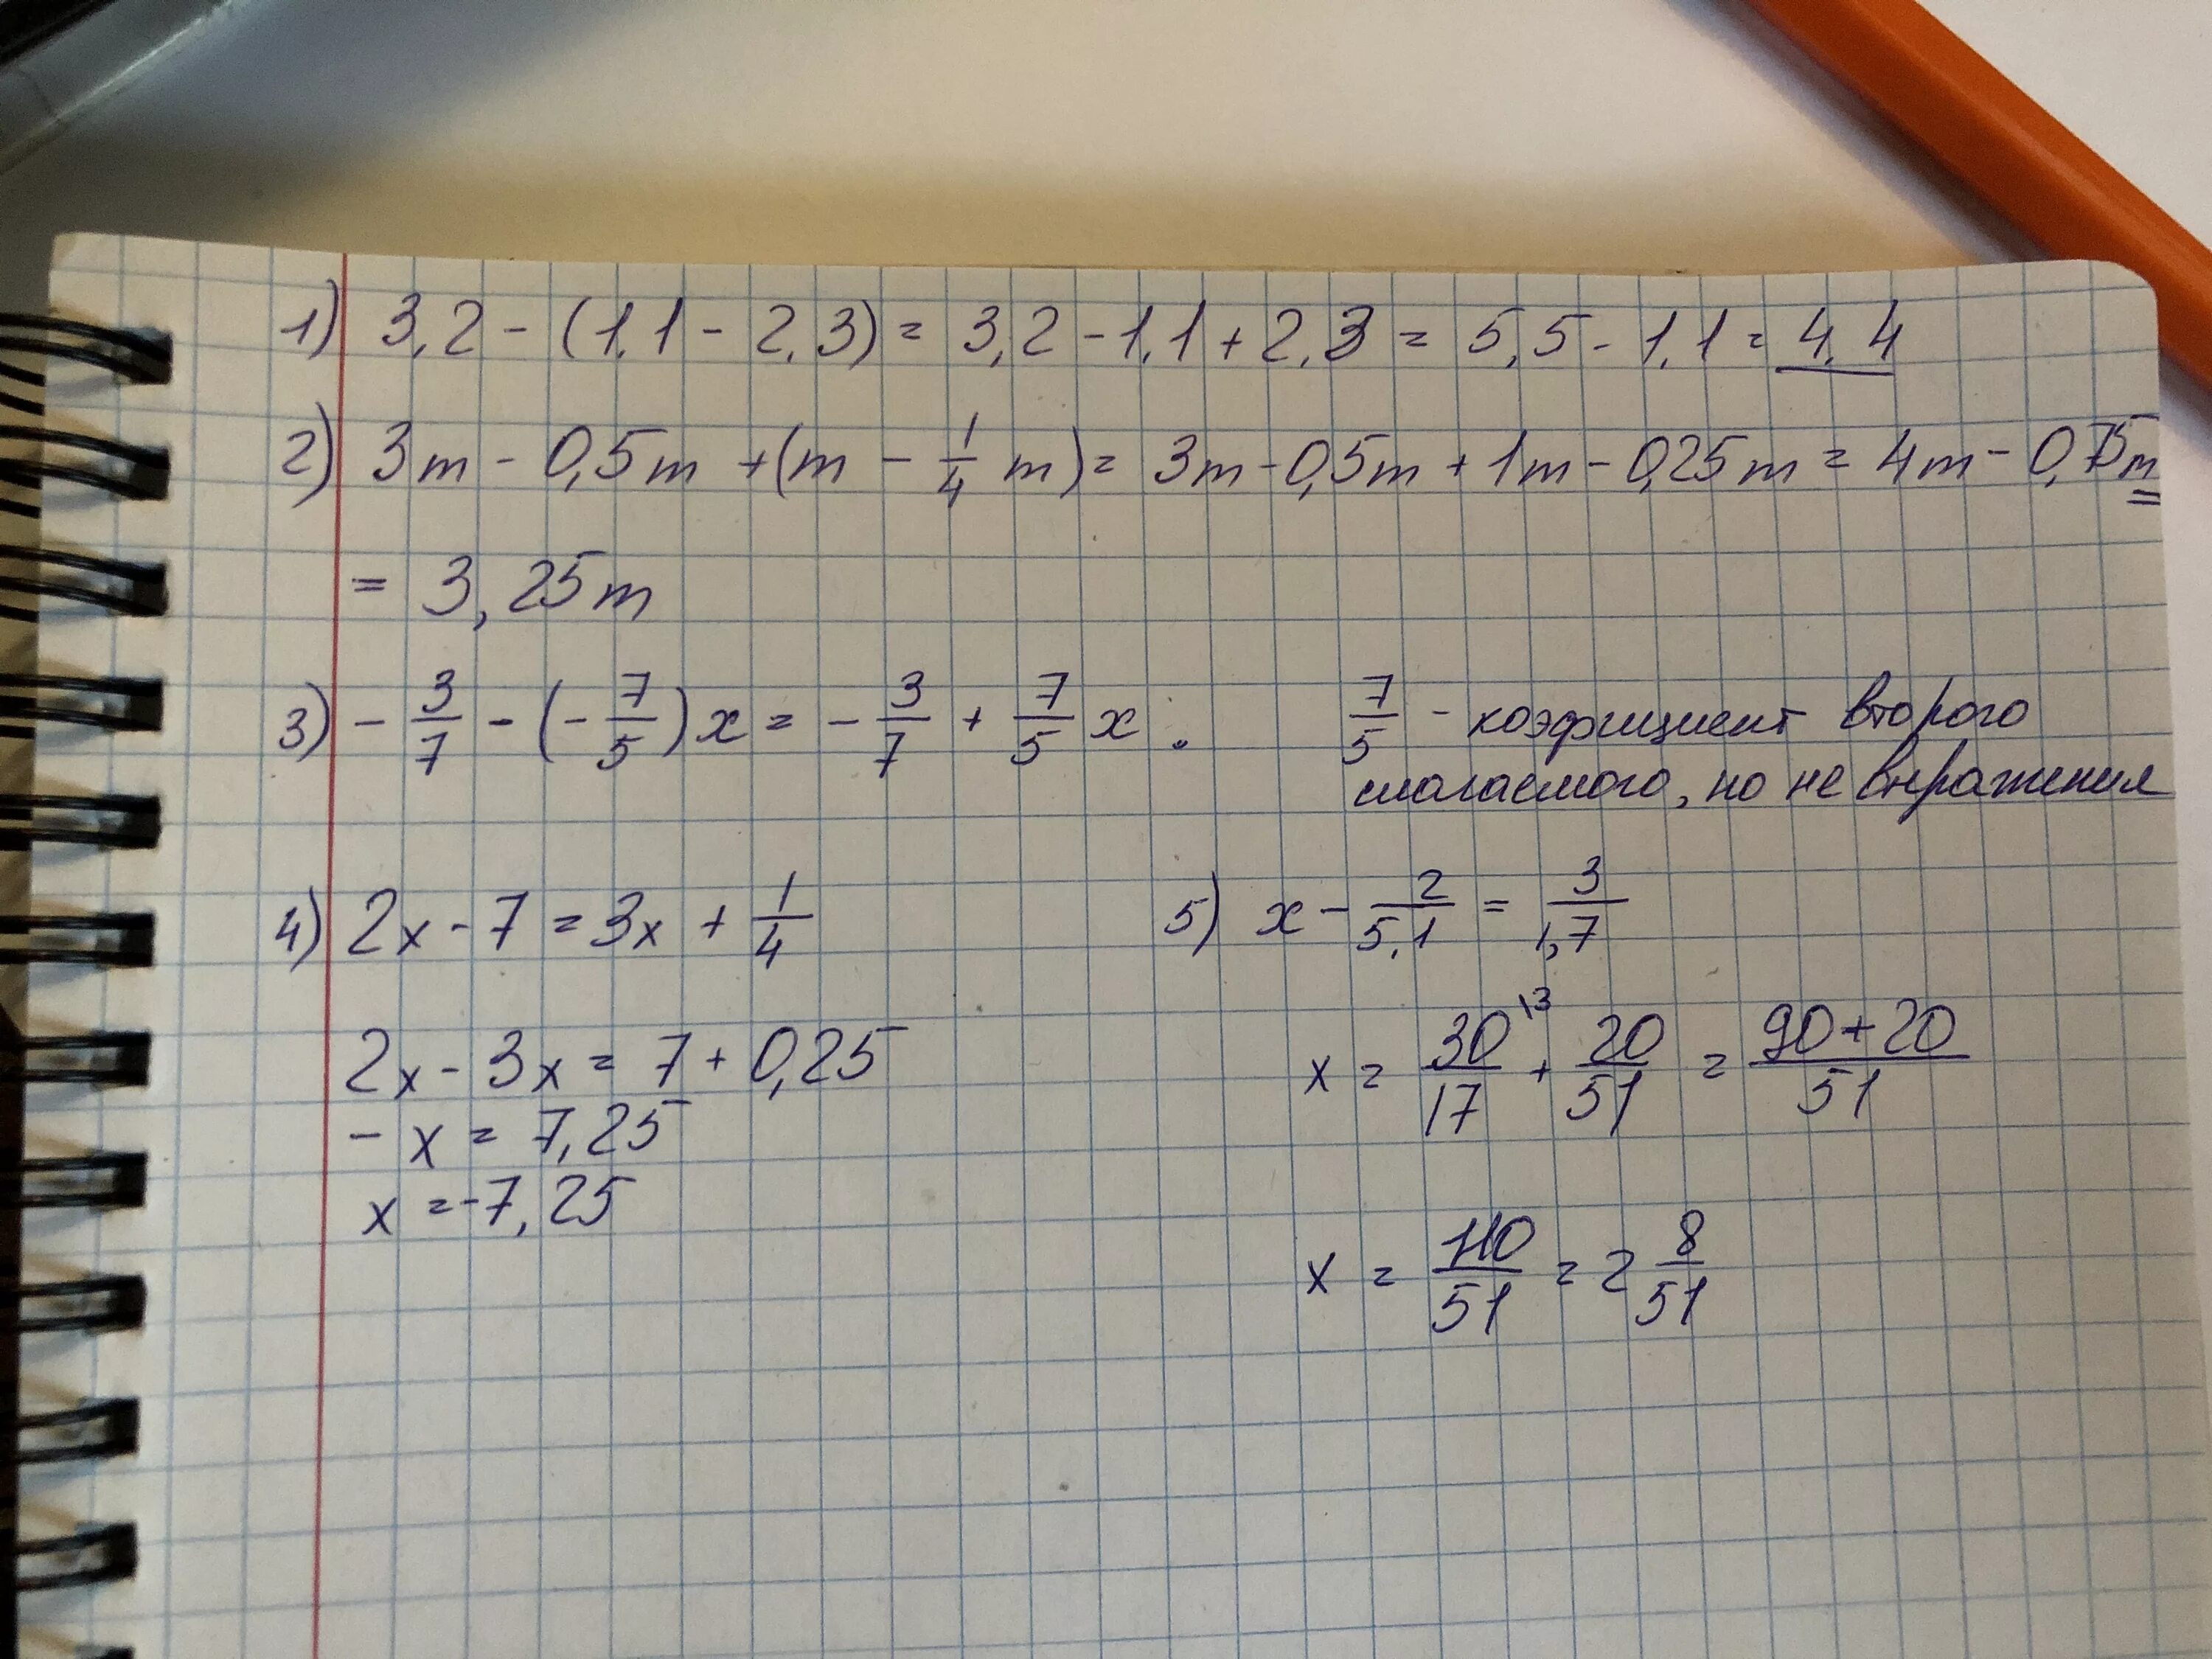 1) 3,2 - (1,1 - 2,3) = 3,2 - 1,1 + 2,3 = 5,5 - 1,1 = 4,4
2) 3m - 0,5m + (m - 1/4 m) = 3m - 0,5m + 1m - 0,25m = 4m - 0,75m =
= 3,25m
3) - 3/7 - (- 7/5) x = - 3/7 + 7/5 x . 7/5 - коэфициент второго
слагаемого, но не выражения
4) 2x - 7 = 3x + 1/4
2x - 3x = 7 + 0,25
- x = 7,25
x = -7,25
5) x - 2/5,1 = 3/1,7
x = 30/17 \3 + 20/51 = 90+20/51
x = 110/51 = 2 8/51